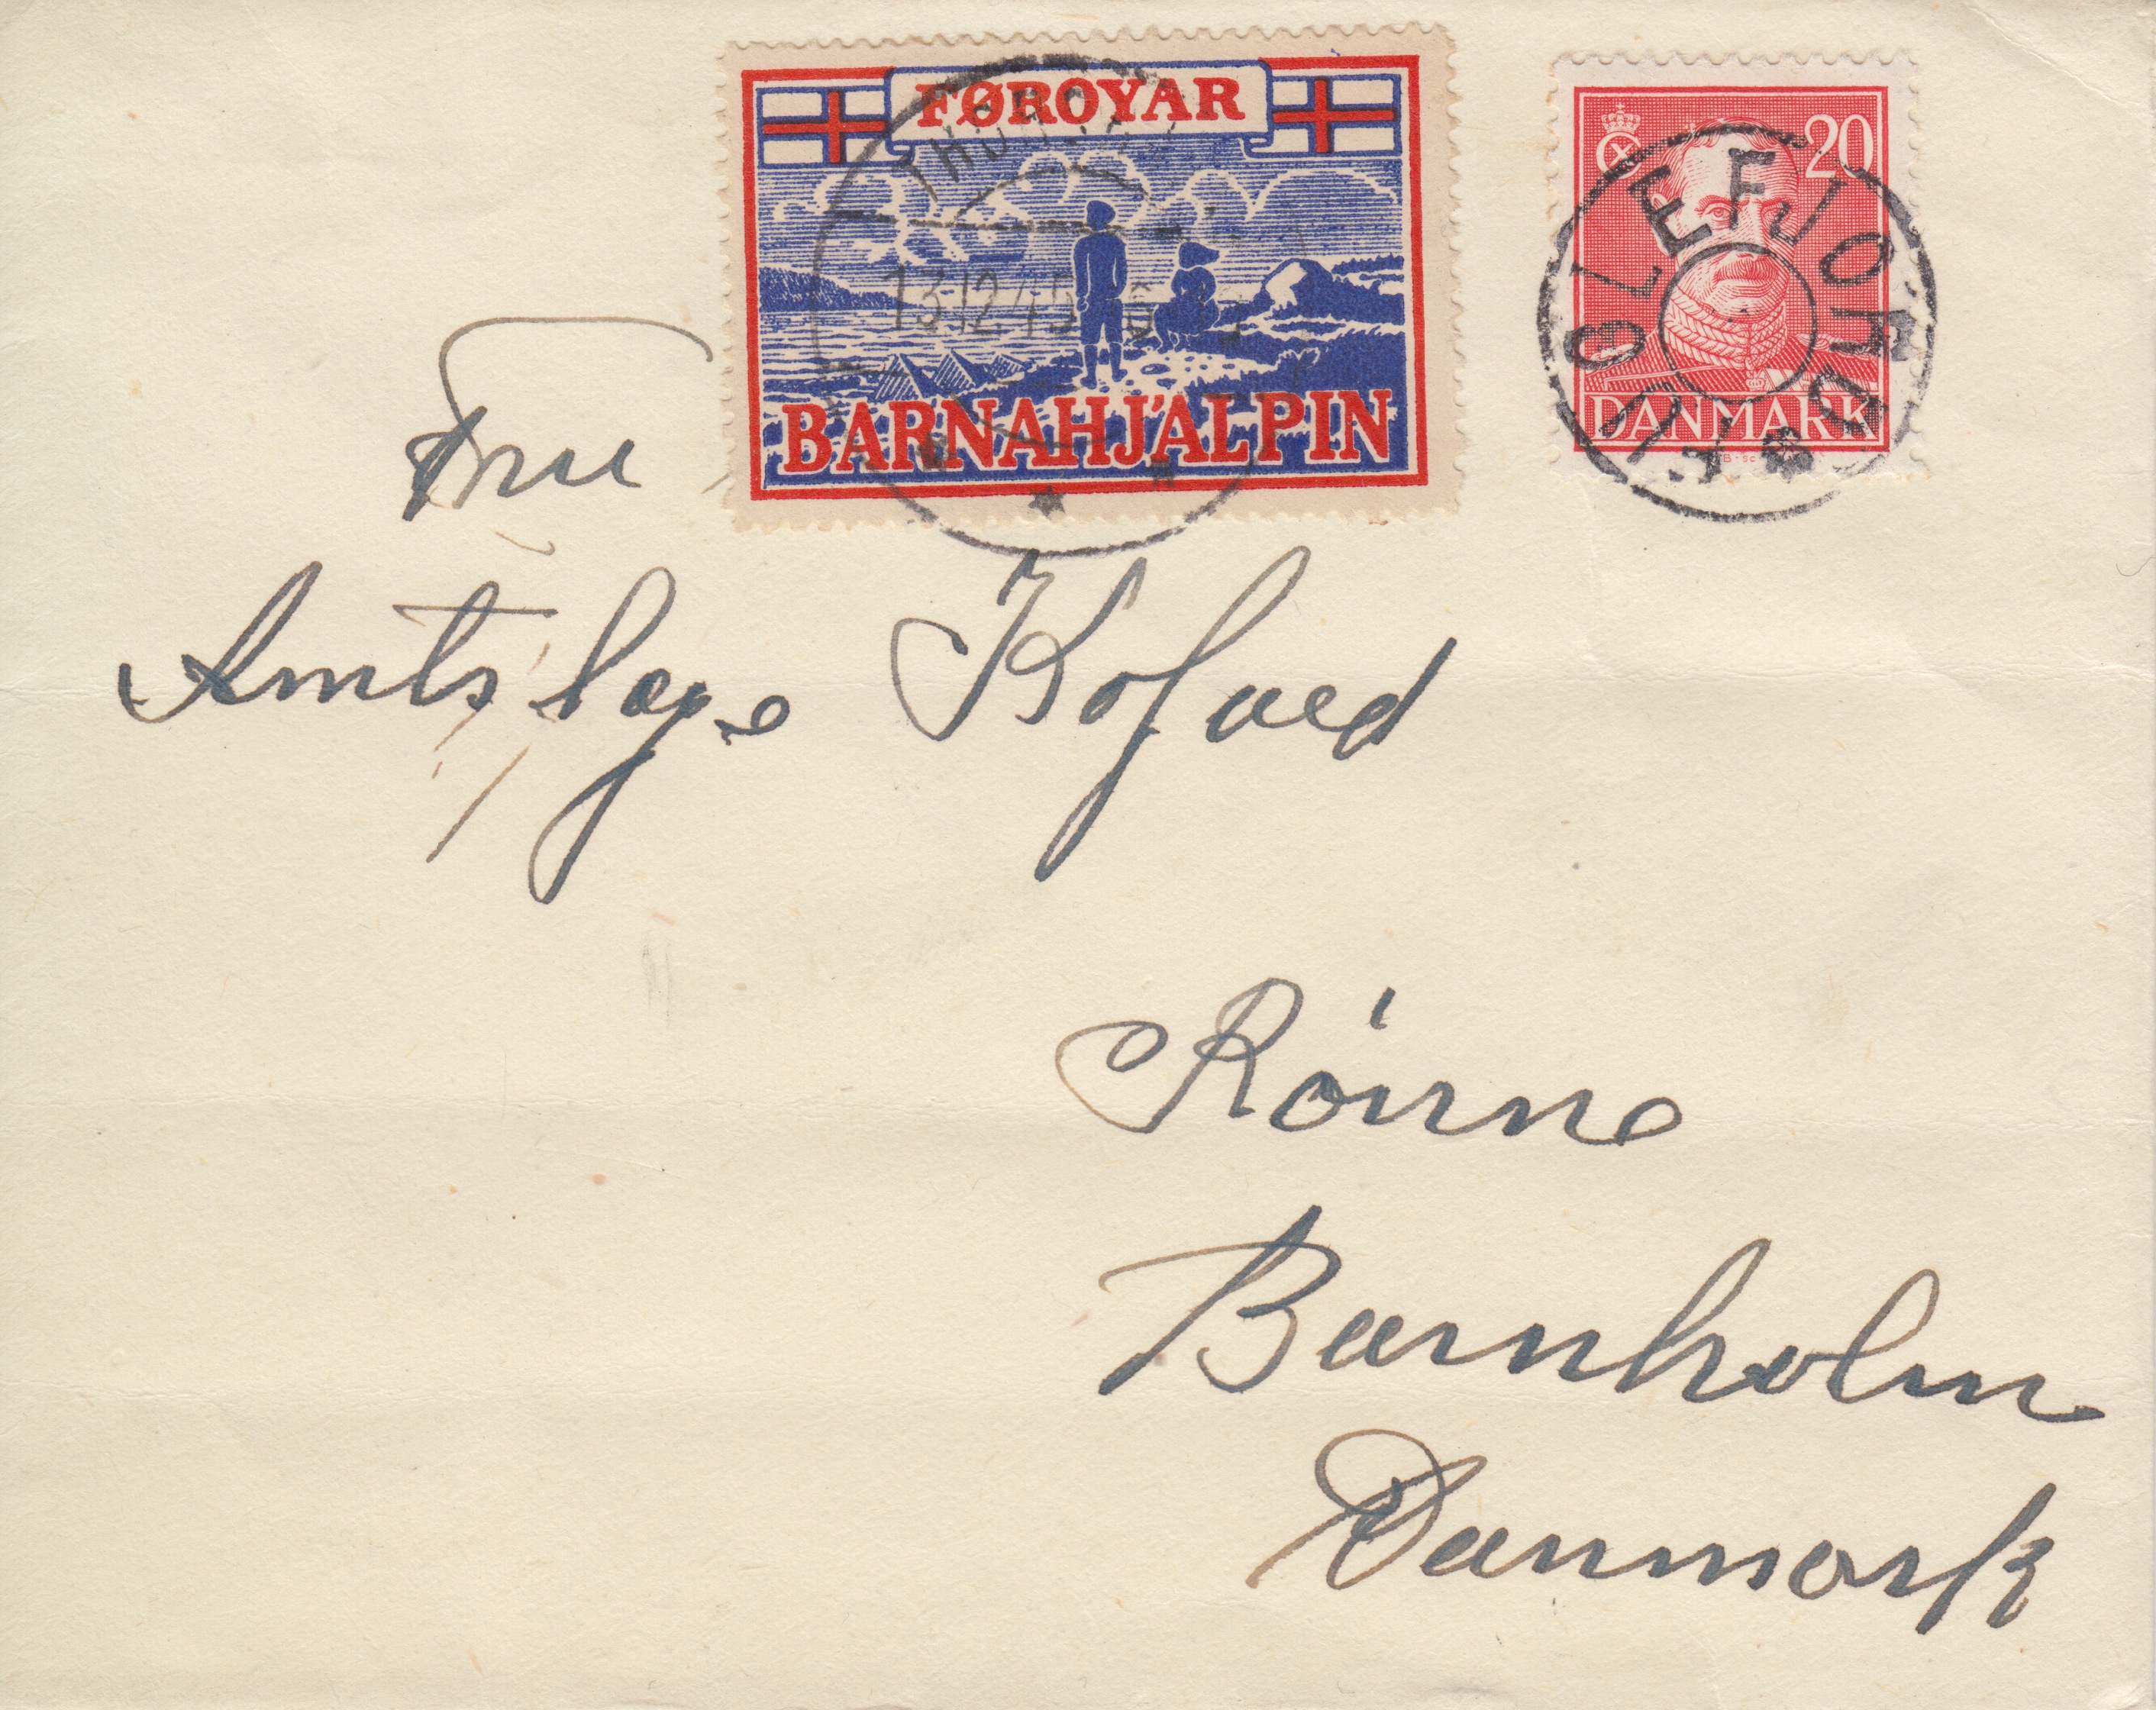 FØROYAR
BARNAHJÁLPIN
13.12.45
20
DANMARK
FUGLEFJORD
Fru
Amtslæge Kofoed
Rönne
Barnholm
Danmark